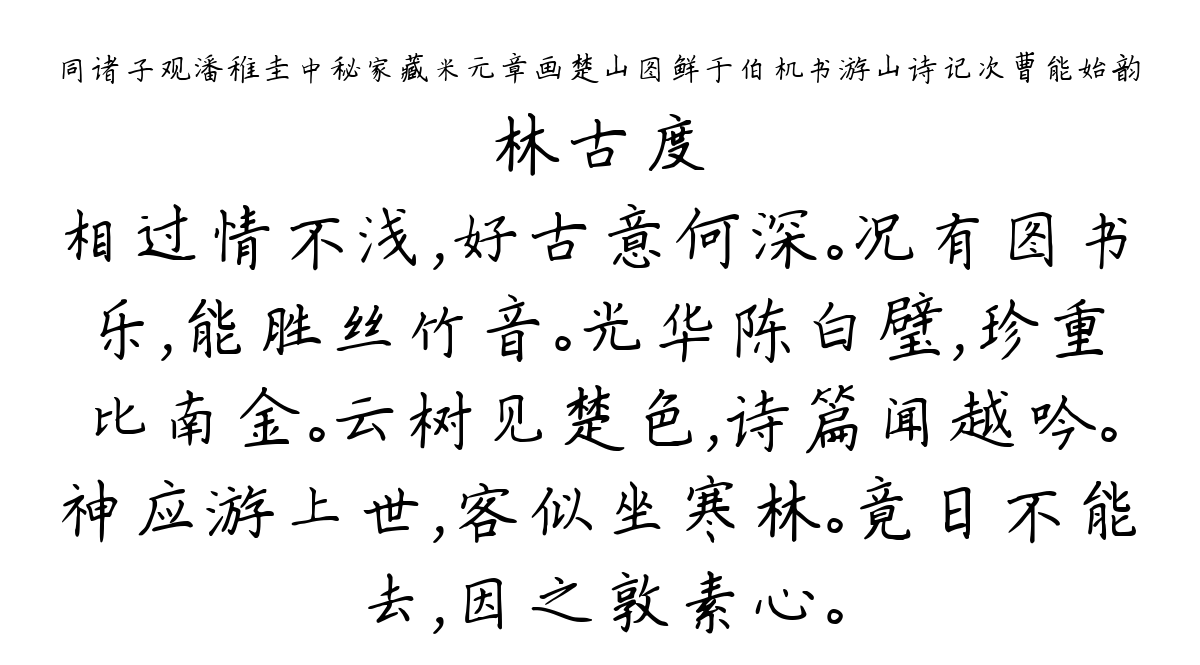 同诸子观潘稚圭中秘家藏米元章画楚山图鲜于伯机书游山诗记次曹能始韵
林古度
相过情不浅,好古意何深。况有图书
乐,能胜丝竹音。光华陈白璧,珍重
比南金。云树见楚色,诗篇闻越吟。
神应游上世,客似坐寒林。竟日不能
去,因之敦素心。